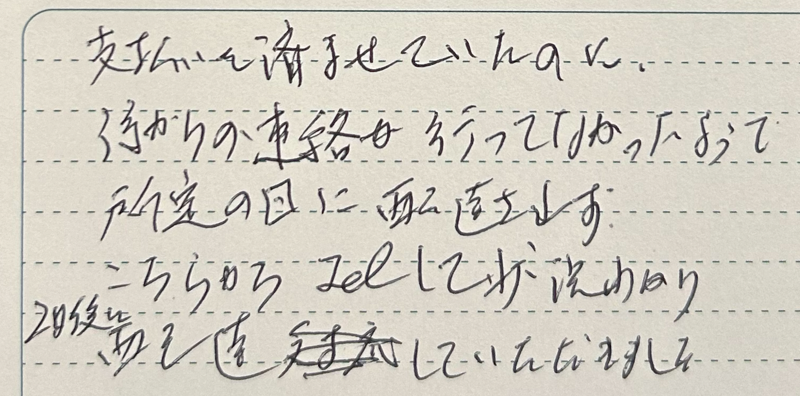 支払いを済ませていたのに、
からの連絡が行ってなかったようで
所定の日に配達されず
こちらからTelして状況わかり
2日後に 配達 していただきました